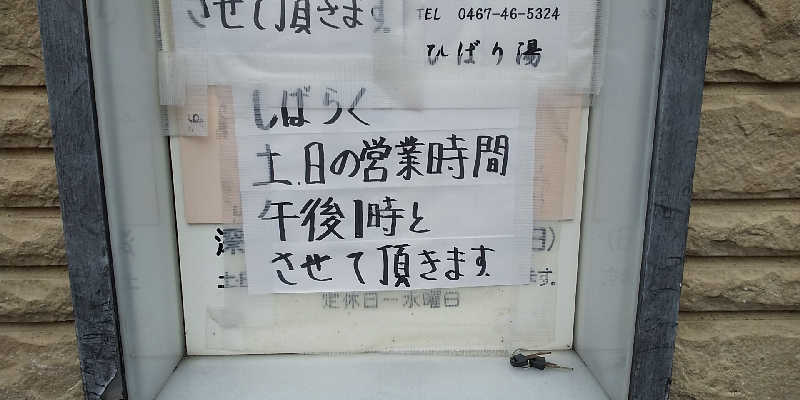 させて頂きます
TEL 0467-46-5324
ひばり湯
しばらく
土.日の営業時間
午後1時と
させて頂きます
深
日)
土
す。
定休日--水曜日